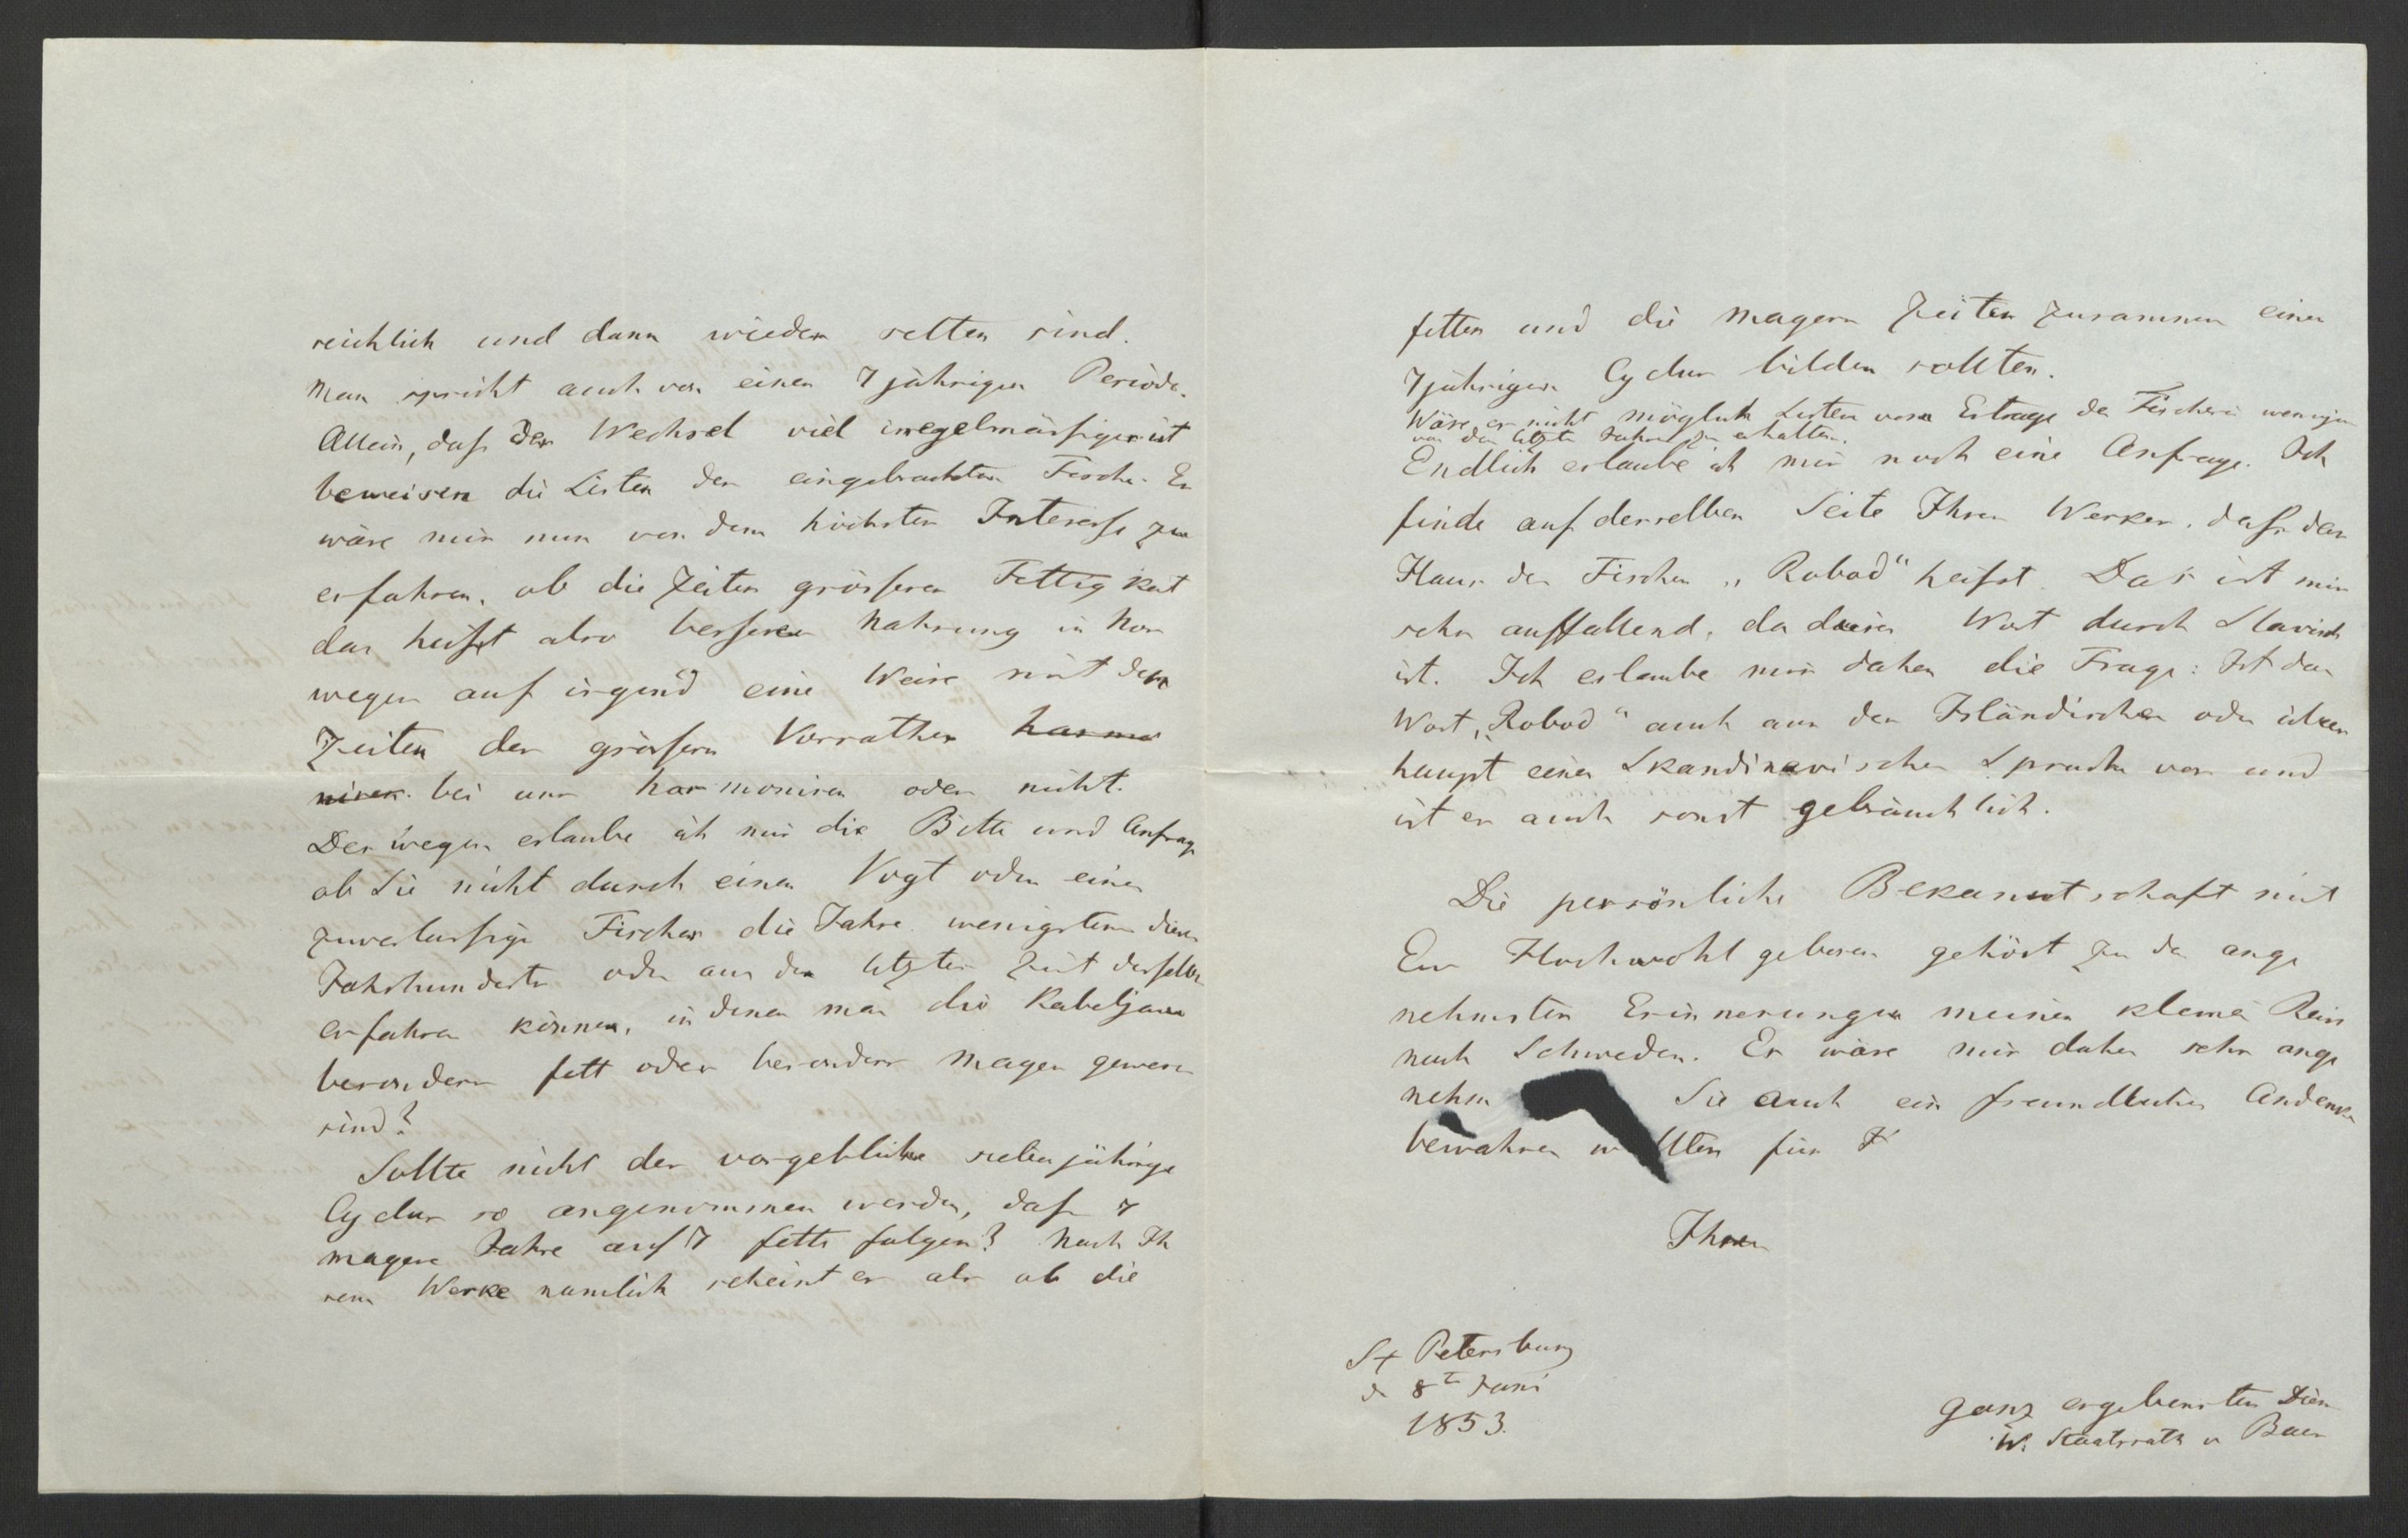 reichlich und dann wieder selten sind.
Man spricht auch von einer 7jährigen Periode.
Allein, daß der Wechsel viel irregelmässiger ist
beweisen die Listen der eingebrachten Fische. Es
wäre mir nun von dem höchsten Interesse zu
erfahren, ob die Zeiten grösserer Fettigkeit
das heißt also besserer Nahrung in Nor
wegen auf irgend eine Weise mit den
Zeiten der grössern Vorrathes harmo
niren bei uns harmoniren oder nicht.
Deswegen erlaube ich mir die Bitte und Anfrage
ob Sie nicht durch einen Vogt oder einen
zuverlässige Fischer die Jahre wenigstens dieses
Jahrhunderts oder aus der letzten Zeit desselben
erfahren können, in denen man die Kabeljaue
besonders fett oder besonders mager gewesen
sind?
Sollte nicht der vorgebliche siebenjährige
Cyclus so angenommen werden, daß 7
magere Jahre auf 7 fette folgen? Nach Ih
rem Werke namlich scheint es als ob die
fetten und die magern Zeiten zusammen einen
7jährigen Cyclus bilden sollten.
Wäre es nicht möglich Listen vom Ertrage der Fischerei wenigstens
von den letzten Jahren zu erhalten.
Endlich erlaube ich mir noch eine Anfrage. Ich
finde auf derselben Seite Ihres Werkes, daß das
Haus der Fischer „Robod“ heißt. Das ist mir
sehr auffallend, da dieses Wort durch Slavisch
ist. Ich erlaube mir daher die Frage: Ist das
Wort „Robod“ auch aus der Isländischen oder über
haupt einer Skandinavischen Sprache von und
ist es auch sonst gebräuchlich.
Die persönliche Bekanntschaft mit
Eur Hochwohlgeboren gehört zu den ange
nehmsten Erinnerungen meiner kleinen Reise
nach Schweden. Es wäre mir daher sehr ange
nehm Sie auch ein freundliches Andenken
bewahren wollten für
Ihren
St Petersburg
d 8ten Juni
1853.
ganz ergebensten Diener
W. Staatsrath v Baer